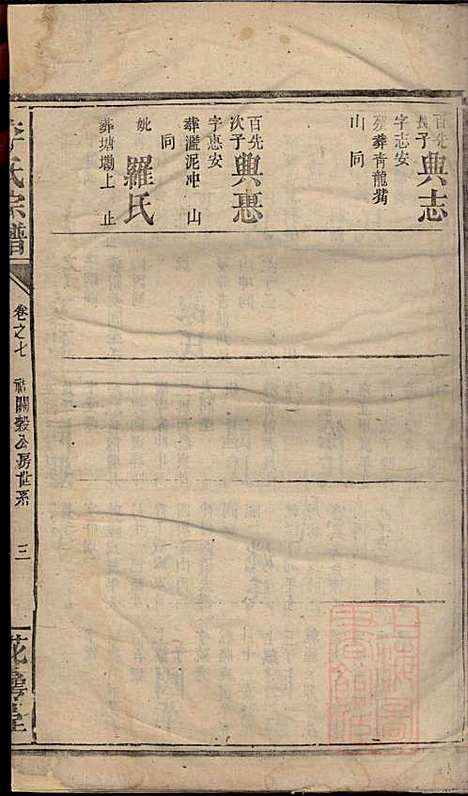 百先
長子
興志
字志安
葬青龍嘴
山同
百先
次子
興惠
字惠安
葬濫泥冲 山
同
妣 羅氏
葬塘墈上 止
李氏宗譜
卷之七
公房世系
三